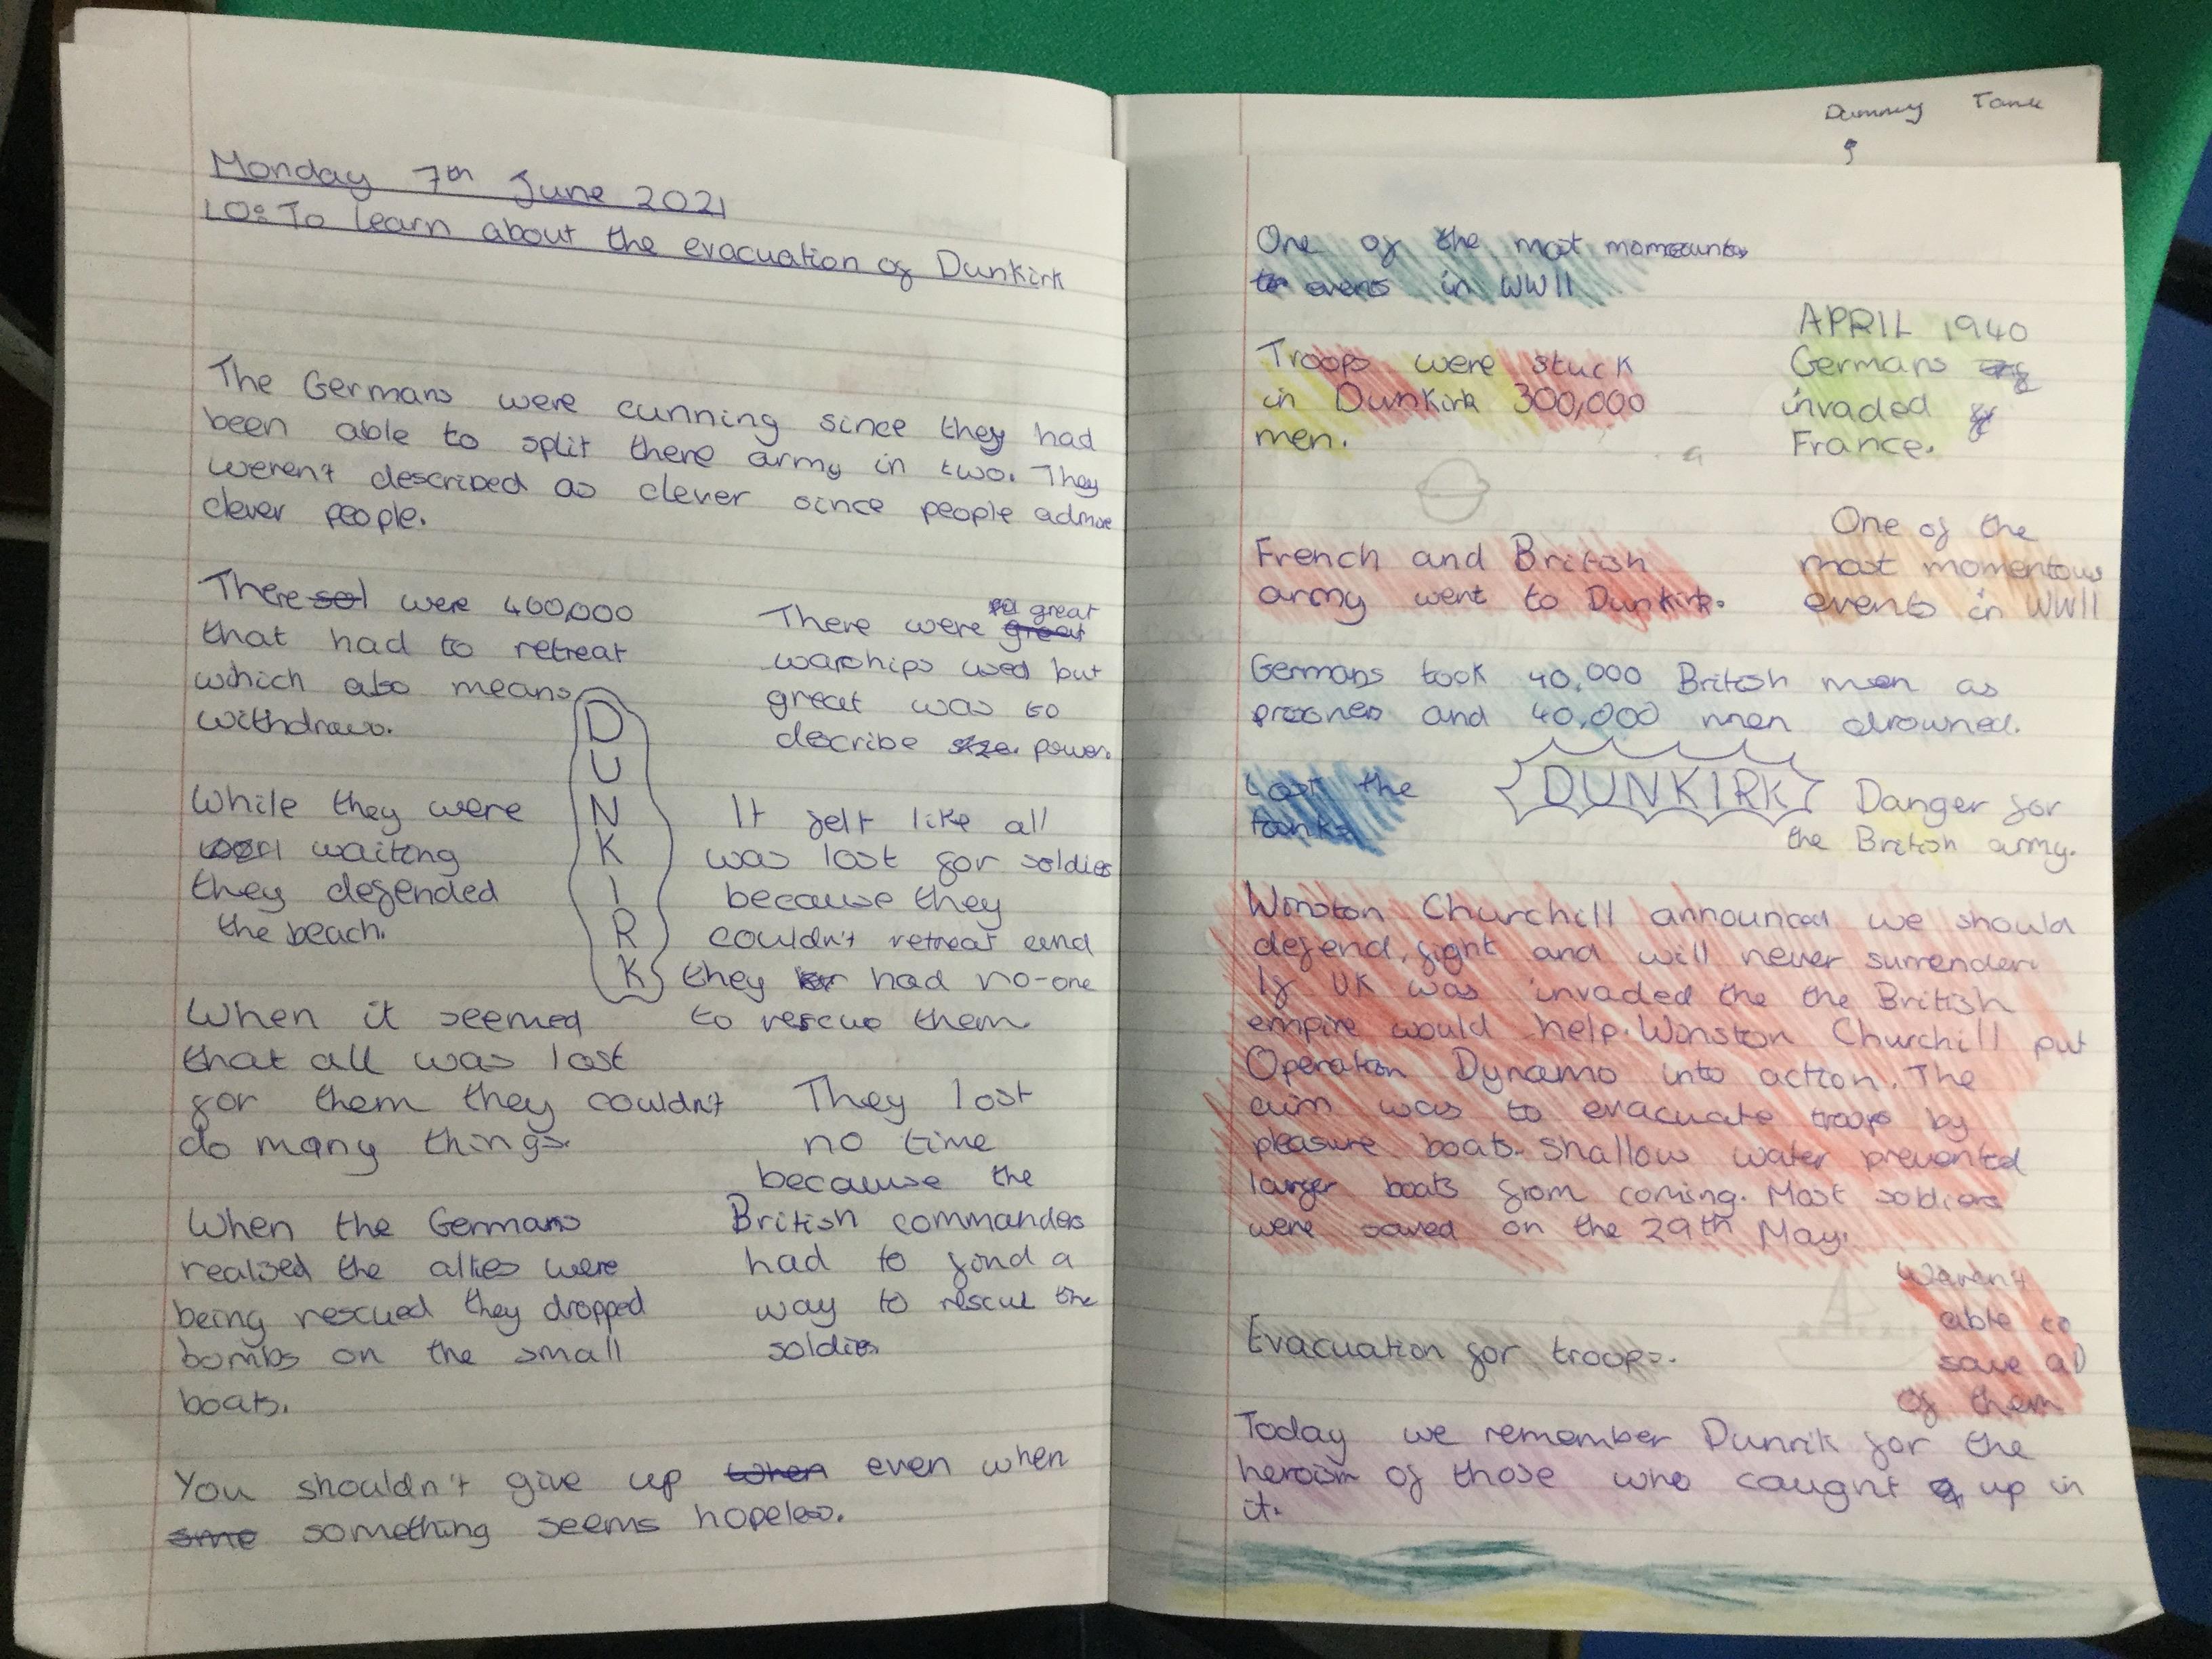 Monday 7th June 2021
LO: To learn about the evacuation of Dunkirk
The Germans were cunning since they had
been able to split there army in two. They
weren't described as clever since people admire
clever people.
There were 400,000
that had to retreat
which also means
withdraw.
While they were
waiting
they defended
the beach.
When it seemed
that all was lost
for them they couldn't
do many things.
When the Germans
realised the allies were
being rescued they dropped
bombs on the small
boats.
DUNKIRK
There were great
great
warships used but
great was to
describe size. power.
It felt like all
was lost for soldiers
because they
couldn't retreat and
they had no-one
to rescue them
They lost
no time
because the
British commanders
had to find a
way to rescue the
soldiers
You shouldn't give up when even when
sme something seems hopeless.
Dummy Tank
One of the most
events in WWII
APRIL 1940
Germans
invaded
France.
Troops were stuck
in Dunkirk 300,000
men.
One of the
most momentous
events in WWII
French and British
army went to Dunkirk.
Germans took 40,000 British men as
prisoners and 40,000 men drowned.
Lost the
tanks
DUNKIRK
Danger for
the British army.
Winston Churchill announced we should
defend, fight and will never surrender.
If UK was invaded the the British
empire would help. Winston Churchill put
Operation Dynamo into action. The
aim was to evacuate troops by
pleasure boats. Shallow water prevented
larger boats from coming. Most soldiers
were saved on the 29th May.
Evacuation for troops.
Weren't
able to
save all
of them
Today we remember Dunrik for the
heroism of those who caught up in
it.